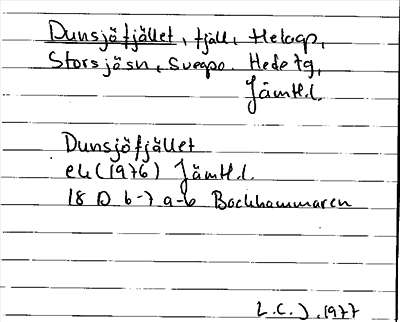 Dunsjöfjället, fjäll, Helagp,
Storsjösn, Svegpo. Hede tg,
Jämtl.l.
Dunsjöfjället
ek (1976) Jämtl.l.
18 D b-7 a-b Bockhammaren
L.C.J. 1977